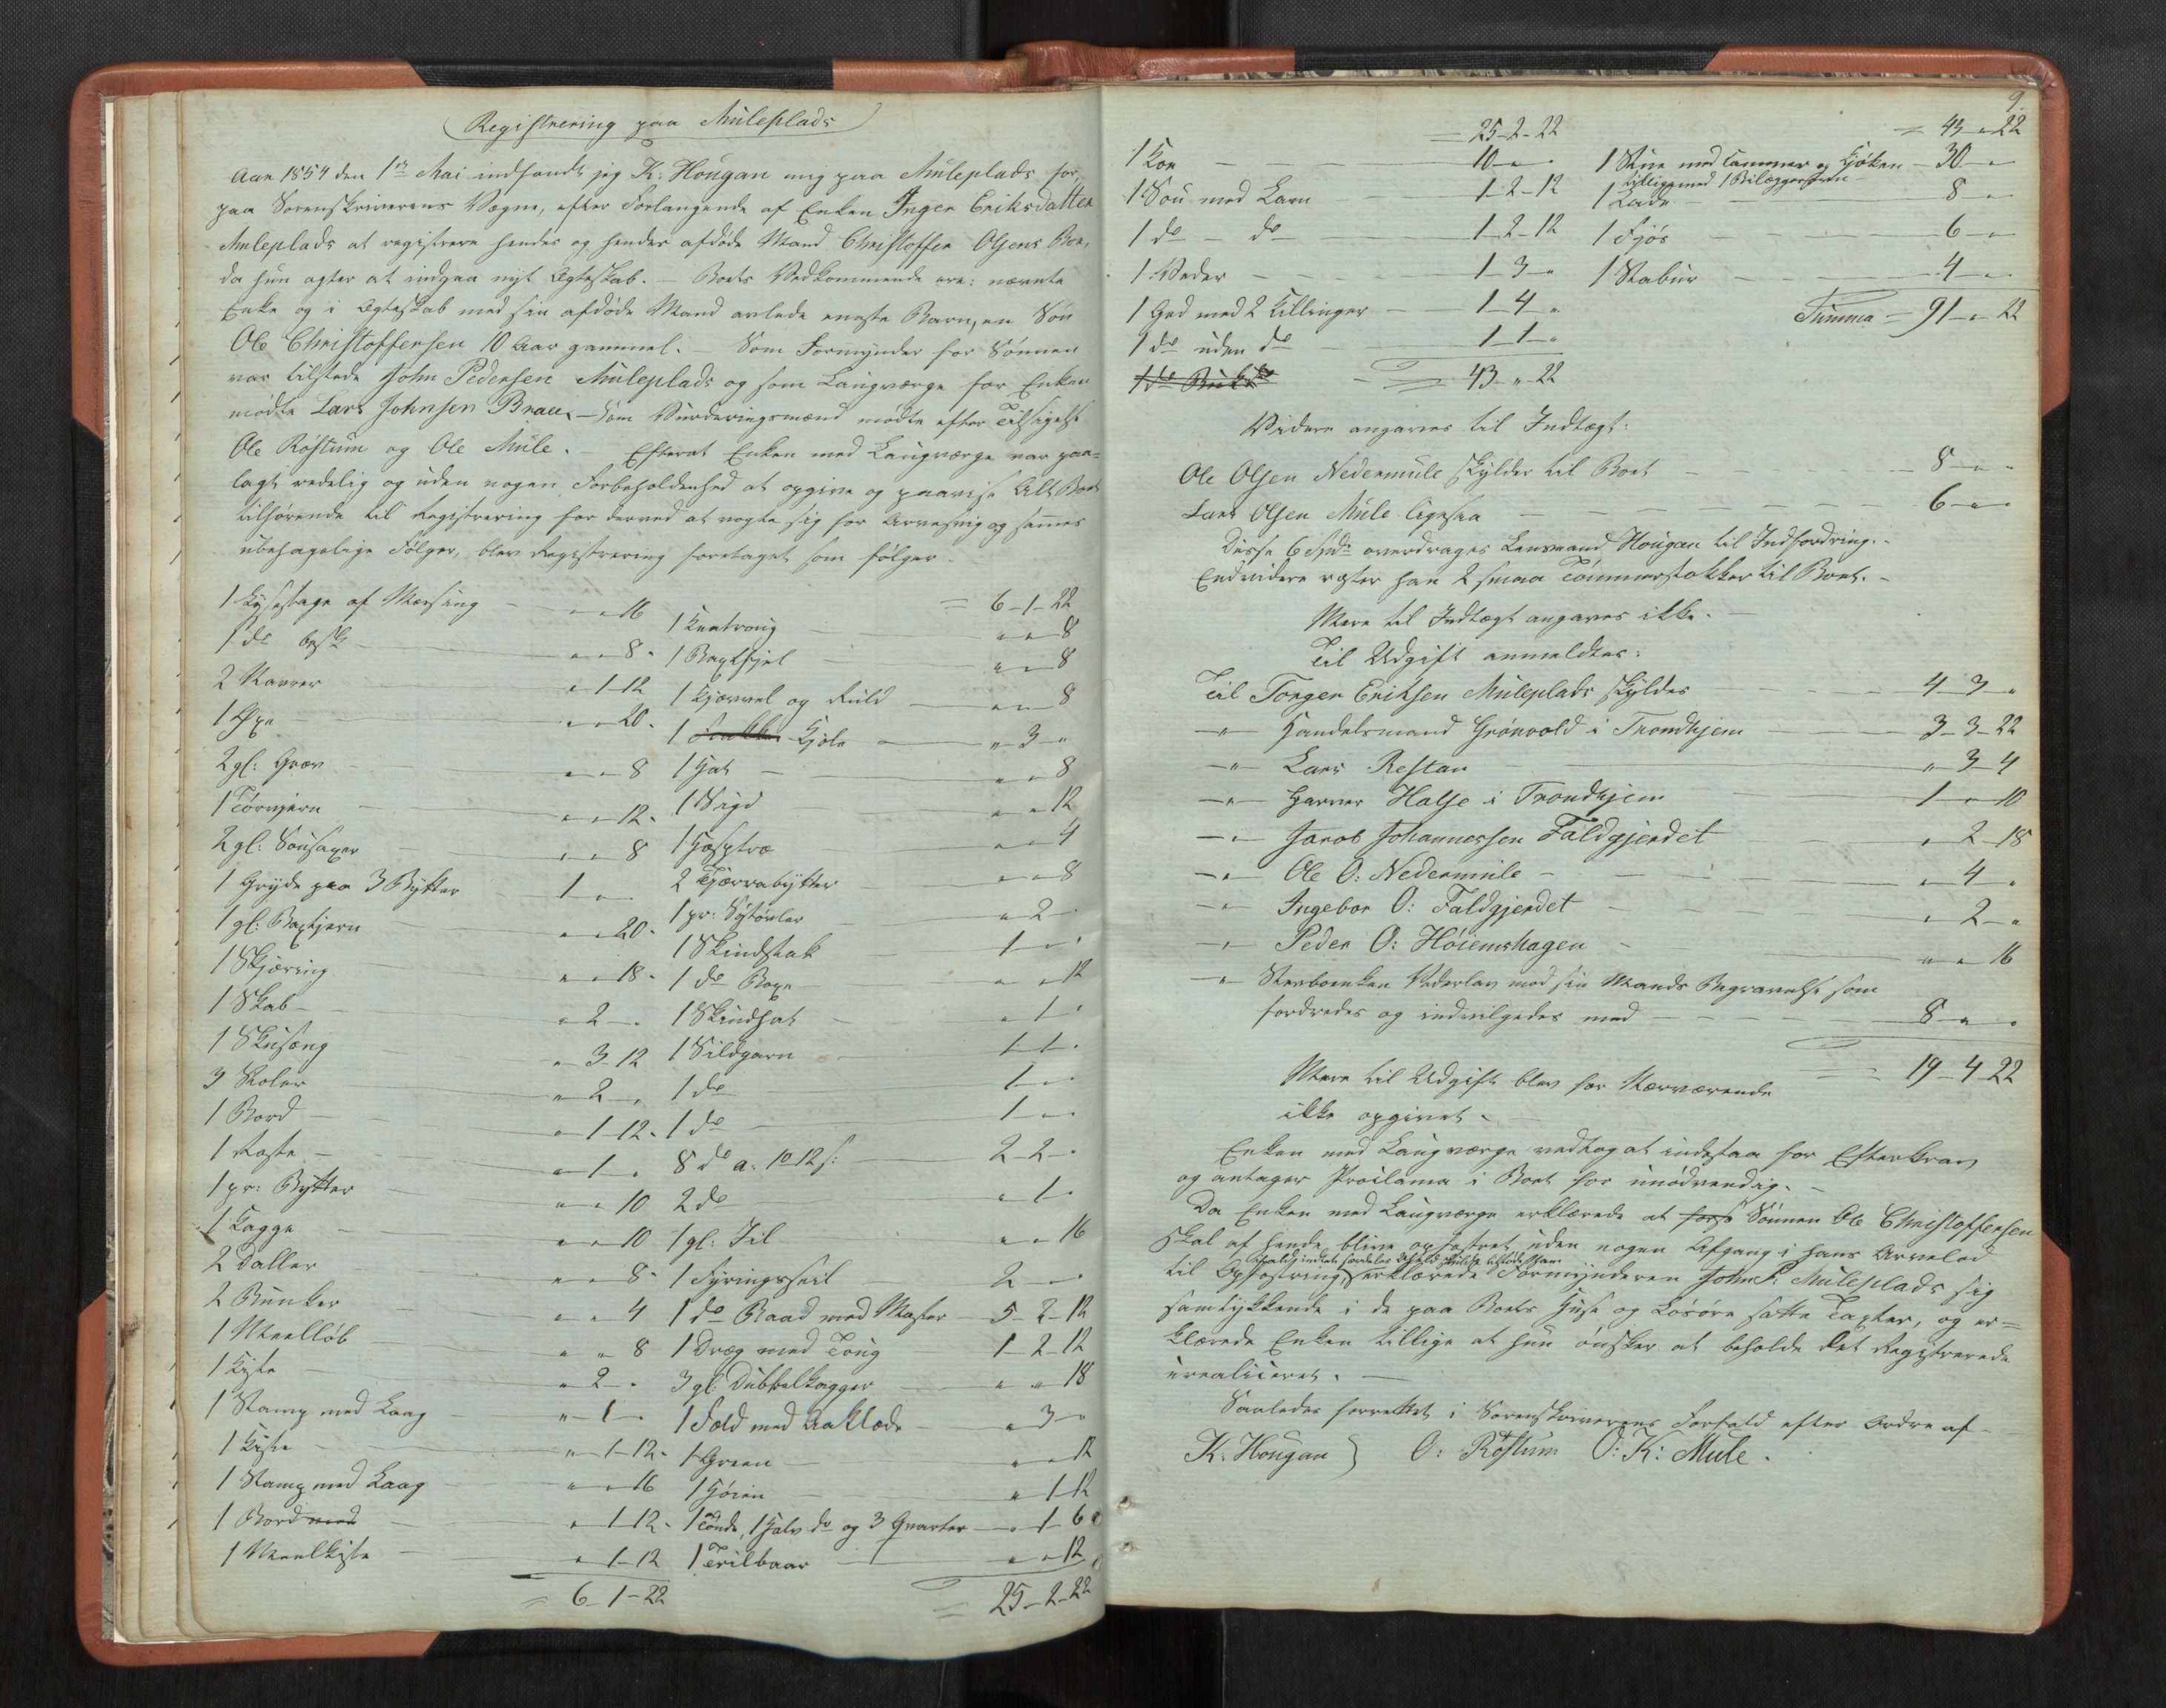 Registrering paa Muleplads
Aar 1854 den 1ste Mai indfandt jeg K. Hougan mig paa Muleplads for,
paa Sorenskriverens Vegne, efter Forlangende af Enken Inger Eriksdatter
Muleplads at registrere hendes og hendes afdøde Mand Christoffer Olsens Boe,
da hun agter at indgaa nyt Ægteskab. – Boets Vedkommende ere: nævnte
Enke og i Ægteskab med sin afdøde Mand avlede eneste Barn, en Søn
Ole Christoffersen 10 Aar gammel. – Som Formynder for Sønnen
var tilstede John Pedersen Muleplads og som Laugværge for Enken
mødte Lars Johnsen Braee. – Som Vurderingsmænd mødte efter Tilsigelse
Ole Røstum og Ole Mule. – Efterat Enken med Laugværge var paa=
lagt redelig og uden nogen Forbeholdenhed at opgive og paavise Alt Boet
tilhørende til Registrering for derved at vogte sig for Arvesvig og sammes
ubehagelige Følger, blev Registrering foretaget som følger.
1 Lysestage af Messing – „ „ 16
1 do – „ „ 8
2 Navrer – „ 1 12
1 Øxe – „ „ 20
2 gl: Grev – „ „ 8
1 Tørvjern – „ „ 12
2 gl: Sousaxer – „ „ 8
1 Gryde paa 3 Bytter – 1 „ „
1 gl: Baxtjern – „ „ 20
1 Skjæring – „ „ 18
1 Skab – „ 2 „
1 Skusæng – „ 3 12
3 Stoler – „ 2 „
1 Bord – „ 1 12
1 – „ 1 „
1 pr: Bytter – „ „ 10
1 Kagge – „ „ 10
2 Daller – „ „ 8
2 Bunker – „ „ 4
1 Meelløb – „ „ 8
1 Kiste – „ 2 „
1 Stamp med Laag – „ 1 „
1 Kiste – „ 1 12
1 Stamp med Laag – „ „ 16
1 Bord med – „ 1 12
1 Meelkiste – „ 1 12
= 6 1 22
= 6 1 22
1 Knatroug – „ „ 8
1 Baxtfjel – „ „ 8
1 Kjævvel og Ruld – „ „ 8
1 Kjole – „ 3 „
1 Hat – „ „ 8
1 Sigd – „ „ 12
1 Haspetræ – „ „ 4
2 Tjærrebytter – „ „ 8
1 pr: Søstøvler – „ 2 „
1 Skindstak – 1 „ „
1 do Boxe – „ „ 12
1 Skindhat – „ 1 „
1 Sildgarn – 1 1 „
1 do – 1 „ „
1 do – 1 „ „
8 do a. 1 12 s: – 2 2 „
2 do – „ 1 „
1 gl: Ill – „ „ 16
1 Fyringsseil – 2 „ „
1 do Baad med Master – 5 2 12
1 Dræg med Toug – 1 2 12
3 gl: Dubbelkagger – „ „ 18
1 Fæld med Aaklæde – „ 3 „
1 Green – „ „ 12
1 Hørin – „ 1 12
1 Tønde, 1 Halv do og 3 Qvarter – „ 1 6
1 Trilbaar – „ „ 12
= 25 2 22
9.
= 25 2 22
1 Koe – 10 „ „
1 Sou med Lam – 1 2 12
1 do – do – 1 2 12
1 Væder – 1 3 „
1 Ged med 2 Killinger – 1 4 „
1 do uden do – 1 1 „
1 do Buk
= 43 „ 22
= 43 „ 22
1 Stue med Kammer og Kjøken – 30 „
tilligemed 1 Bilæggerovn
1 Lade – 8 „
1 Fjøs – 6 „
1 Stabur – 4 „
Summa = 91 „ 22
Videre angaves til Indtægt:
Ole Olsen Nedermule skylder til Boet – 8 „ „
Lars Olsen Mule ligesaa – 6 „ „
Disse 6 Spd: overdrages Lensmand Hougan til Indfordring. –
Endvidere rester han 2 smaa Tømmerstokker til Boet. –
Mere til Indtægt angaves ikke. –
Til Udgift anmeldtes:
Til Torger Eriksen Muleplads skyldes – 4 3 „
– „ – Handelsmand Grønvold i Trondhjem – 3 3 22
– „ – Lars Restan – „ 3 4
– „ – Garver Halse i Trondhjem – 1 „ 10
– „ – Jacob Johannessen Faldgjerdet – „ 2 18
– „ – Ole O: Nedermule – „ 4 „
– „ – Ingebor O: Faldgjerdet – „ 2 „
– „ – Peder O: Høiemshagen – „ „ 16
– „ – Sterboenken Vederlav mod sin Mands Begravelse som
fordredes og indvilgedes med – 8 „ „
= 19 4 22
Mere til Udgift blev for Nærværende
ikke opgivet. –
Enken med Laugværge vedtog at indestaa for Efterkrav
og antager Proclama i Boet for unødvendig. –
Da Enken med Laugværge erklærede at Sønnen Ole Christoffersen
skal af hende blive opfostret uden nogen Afgang i hans Arvelod
til Opfostring, erklærede Formynderen John P: Muleplads sig
samtykkende i de paa Boets Huse og Løsøre satte Taxter, og er=
klærede Enken tillige at hun ønsker at beholde det Registrerede
urealiceret. –
Saaledes forrettet i Sorenskriverens Forfald efter Ordre af
K. Hougan } O: Røstum O: K: Mule.